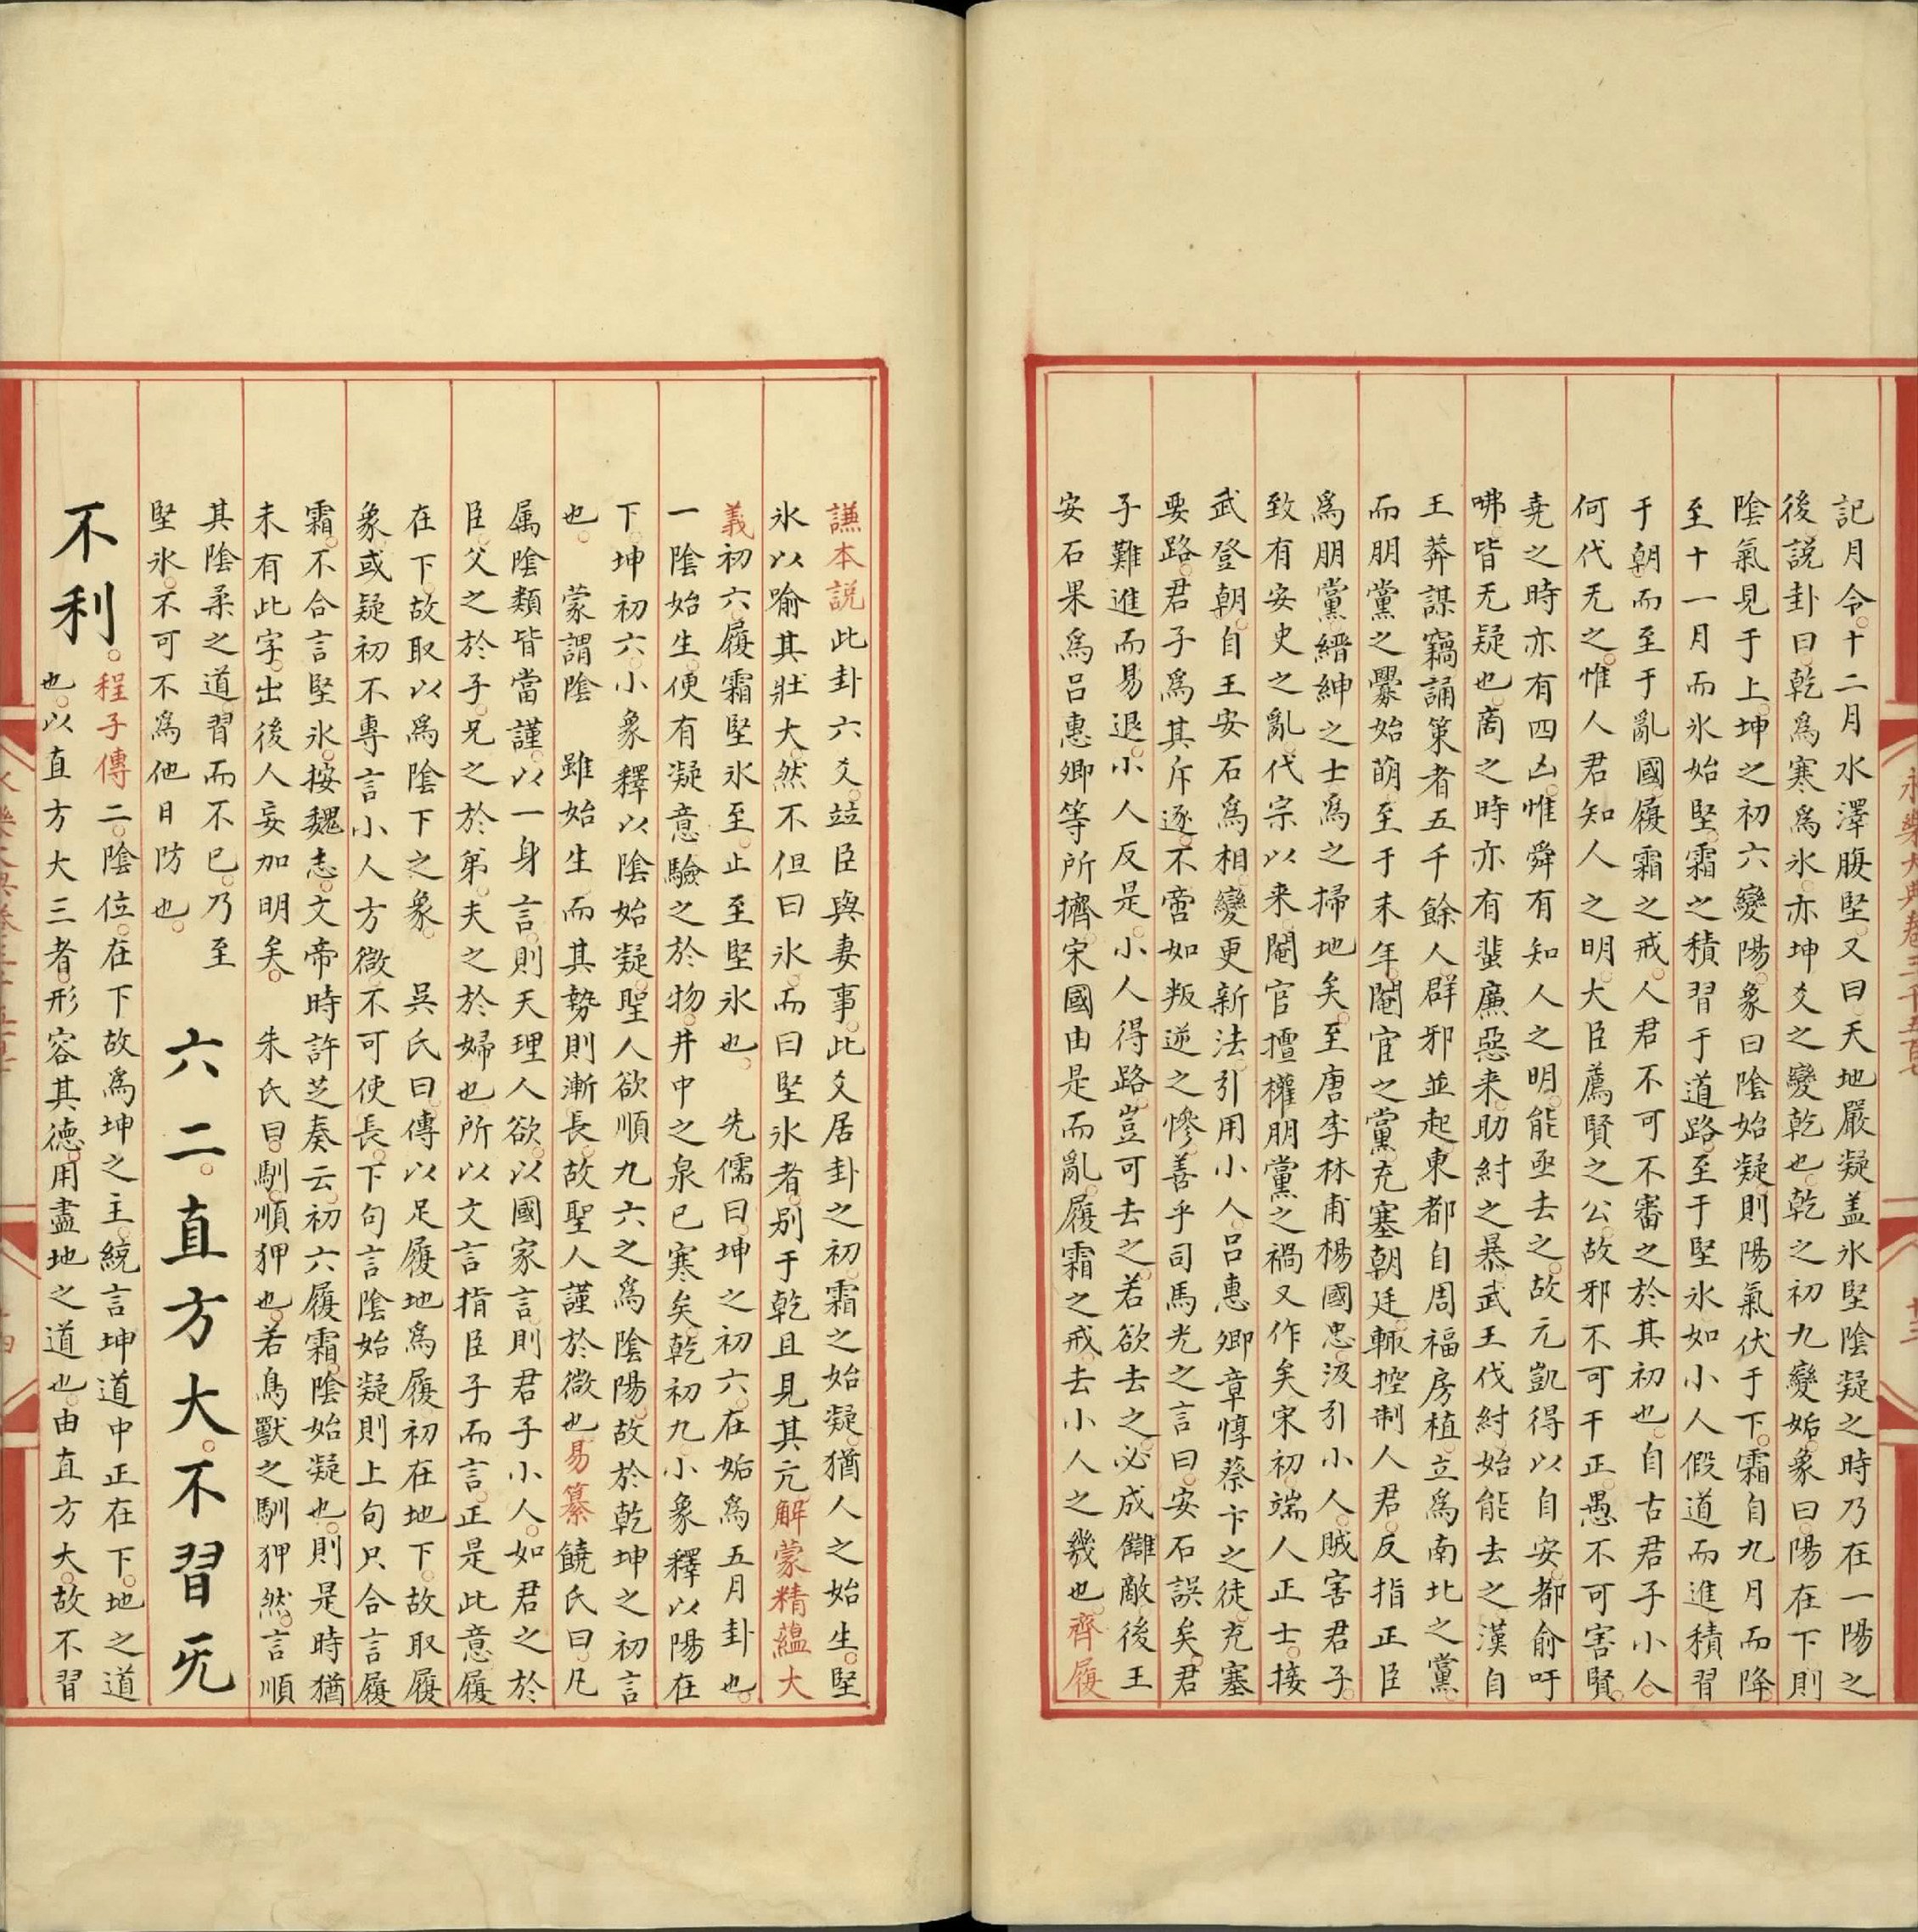 記月令十二月水澤腹堅又曰天地嚴凝盖氷堅陰凝之時乃在一陽之
後説卦曰乾爲寒爲氷亦坤爻之變乾也乾之初九變姤象曰陽在下則
陰氣見于上坤之初六變陽象曰陰始凝則陽氣伏于下霜自九月而降
至十一月而氷始堅霜之積習于道路至于堅氷如小人假道而進積習
于朝而至于亂國履霜之戒人君不可不審之於其初也自古君子小人
何代无之惟人君知人之明大臣薦賢之公故邪不可干正愚不可害賢
尭之時亦有四凶惟舜有知人之明能亟去之故元凱得以自安都俞吁
咈皆无疑也商之時亦有蜚廉惡来助紂之暴武王伐紂始能去之漢自
王莽謀竊誦策者五千餘人群邪並起東都自周福房植立爲南北之黨
而朋黨之釁始萌至于末年閹宦之黨充塞朝廷輙控制人君反指正臣
爲朋黨縉紳之士爲之掃地矣至唐李林甫楊國忠汲引小人賊害君子
致有安史之亂代宗以来閹官擅權朋黨之禍又作矣宋初端人正士接
武登朝自王安石爲相變更新法引用小人吕惠卿章惇蔡卞之徒充塞
要路君子爲其斥逐不啻如叛逆之慘善乎司馬光之言曰安石誤矣君
子難進而易退小人反是小人得路豈可去之若欲去之必成讎敵後王
安石果爲吕惠卿等所擠宋國由是而亂履霜之戒去小人之幾也齊履
謙本説此卦六爻竝臣與妻事此爻居卦之初霜之始凝猶人之始生堅
氷以喻其壯大然不但曰氷而曰堅氷者别于乾且見其亢解蒙精蘊大
義初六履霜堅氷至止至堅氷也 先儒曰坤之初六在姤爲五月卦也
一陰始生便有凝意驗之於物井中之泉已寒矣乾初九小象釋以陽在
下坤初六小象釋以陰始凝聖人欲順九六之爲陰陽故於乾坤之初言
也 蒙謂陰 雖始生而其勢則漸長故聖人謹於微也易纂饒氏曰凡
属陰類皆當謹以一身言則天理人欲以國家言則君子小人如君之於
臣父之於子兄之於弟夫之於婦也所以文言指臣子而言正是此意履
在下故取以爲陰下之象 吳氏曰傳以足履地爲履初在地下故取履
象或疑初不專言小人方微不可使長下句言陰始凝則上句只合言履
霜不合言堅氷按魏志文帝時許芝奏云初六履霜陰始凝也則是時猶
未有此字出後人妄加明矣 朱氏曰馴順狎也若鳥獸之馴狎然言順
其陰柔之道習而不已乃至
堅氷不可不爲他日防也
六二直方大不習旡
不利
程子傳二陰位在下故爲坤之主統言坤道中正在下地之道
也以直方大三者形容其徳用盡地之道也由直方大故不習